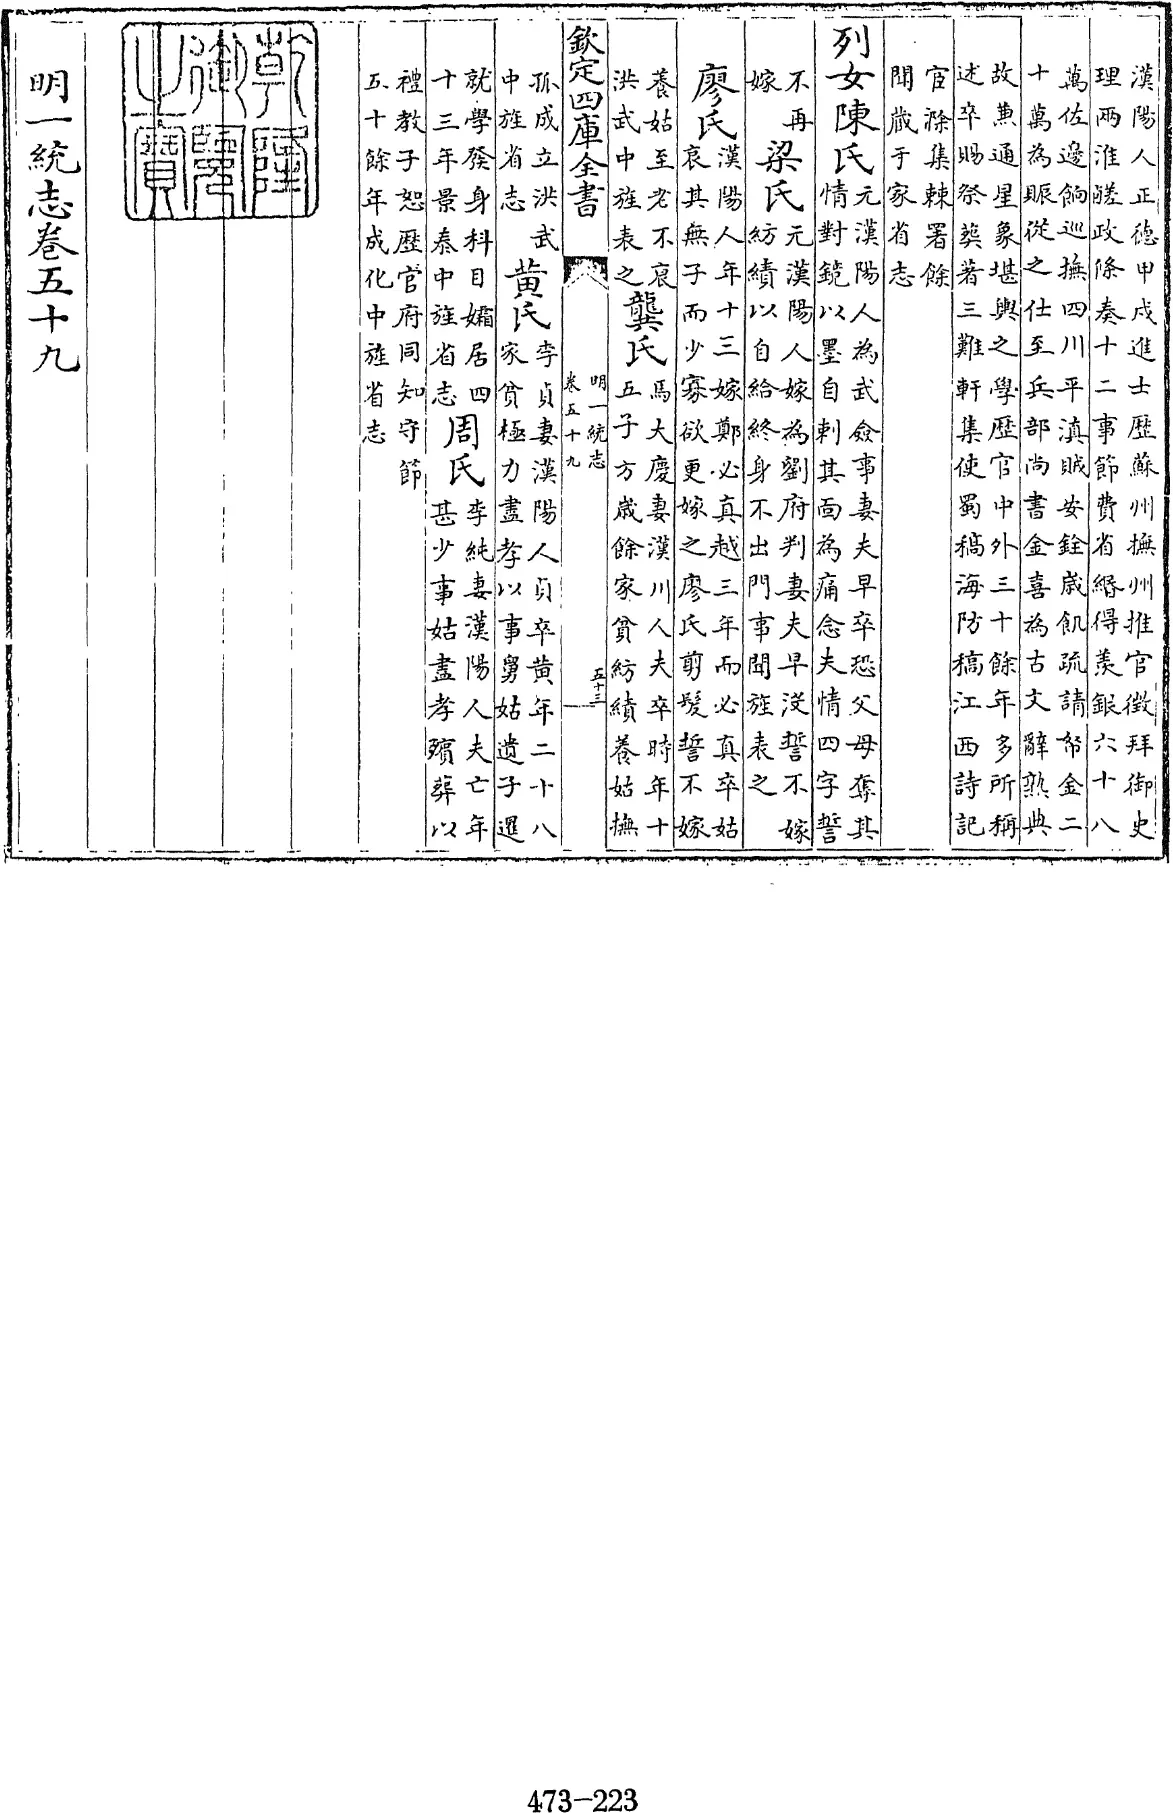 漢陽人正德甲戌進士歷蘇州撫州推官徵拜御史
理兩淮鹾政條奏十二事節費省緡得羨銀六十八
萬佐邊餉巡撫四川平滇賊安銓歲飢疏請帑金二
十萬為賑從之仕至兵部尚書金喜為古文辭熟典
故兼通星象堪輿之學歷官中外三十餘年多所稱
述卒賜祭葬著三難軒集使蜀稿海防稿江西詩記
宦滌集棘署餘
聞藏于家省志
列女陳氏元漢陽人為武僉事妻夫早卒恐父母奪其
情對鏡以墨自刺其面為痛念夫情四字誓
不再
嫁
梁氏元漢陽人嫁為劉府判妻夫早沒誓不嫁
紡績以自給終身不出門事聞旌表之
廖氏漢陽人年十三嫁鄭必真越三年而必真卒姑
哀其無子而少寡欲更嫁之廖氏剪髮誓不嫁
養姑至老不衰
洪武中旌表之
龔氏馬大慶妻漢川人夫卒時年十
五子方歲餘家貧紡績養姑撫
欽定四庫全書
明一統志
卷五十九
五十三
孤成立洪武
中旌省志
黃氏李貞妻漢陽人貞卒黃年二十八
家貧極力盡孝以事舅姑遺子選
就學發身科目孀居四
十三年景泰中旌省志
周氏李純妻漢陽人夫亡年
甚少事姑盡孝殯葬以
禮教子恕歷官府同知守節
五十餘年成化中旌省志
乾隆
御覽
之寶
明一統志卷五十九
473-223